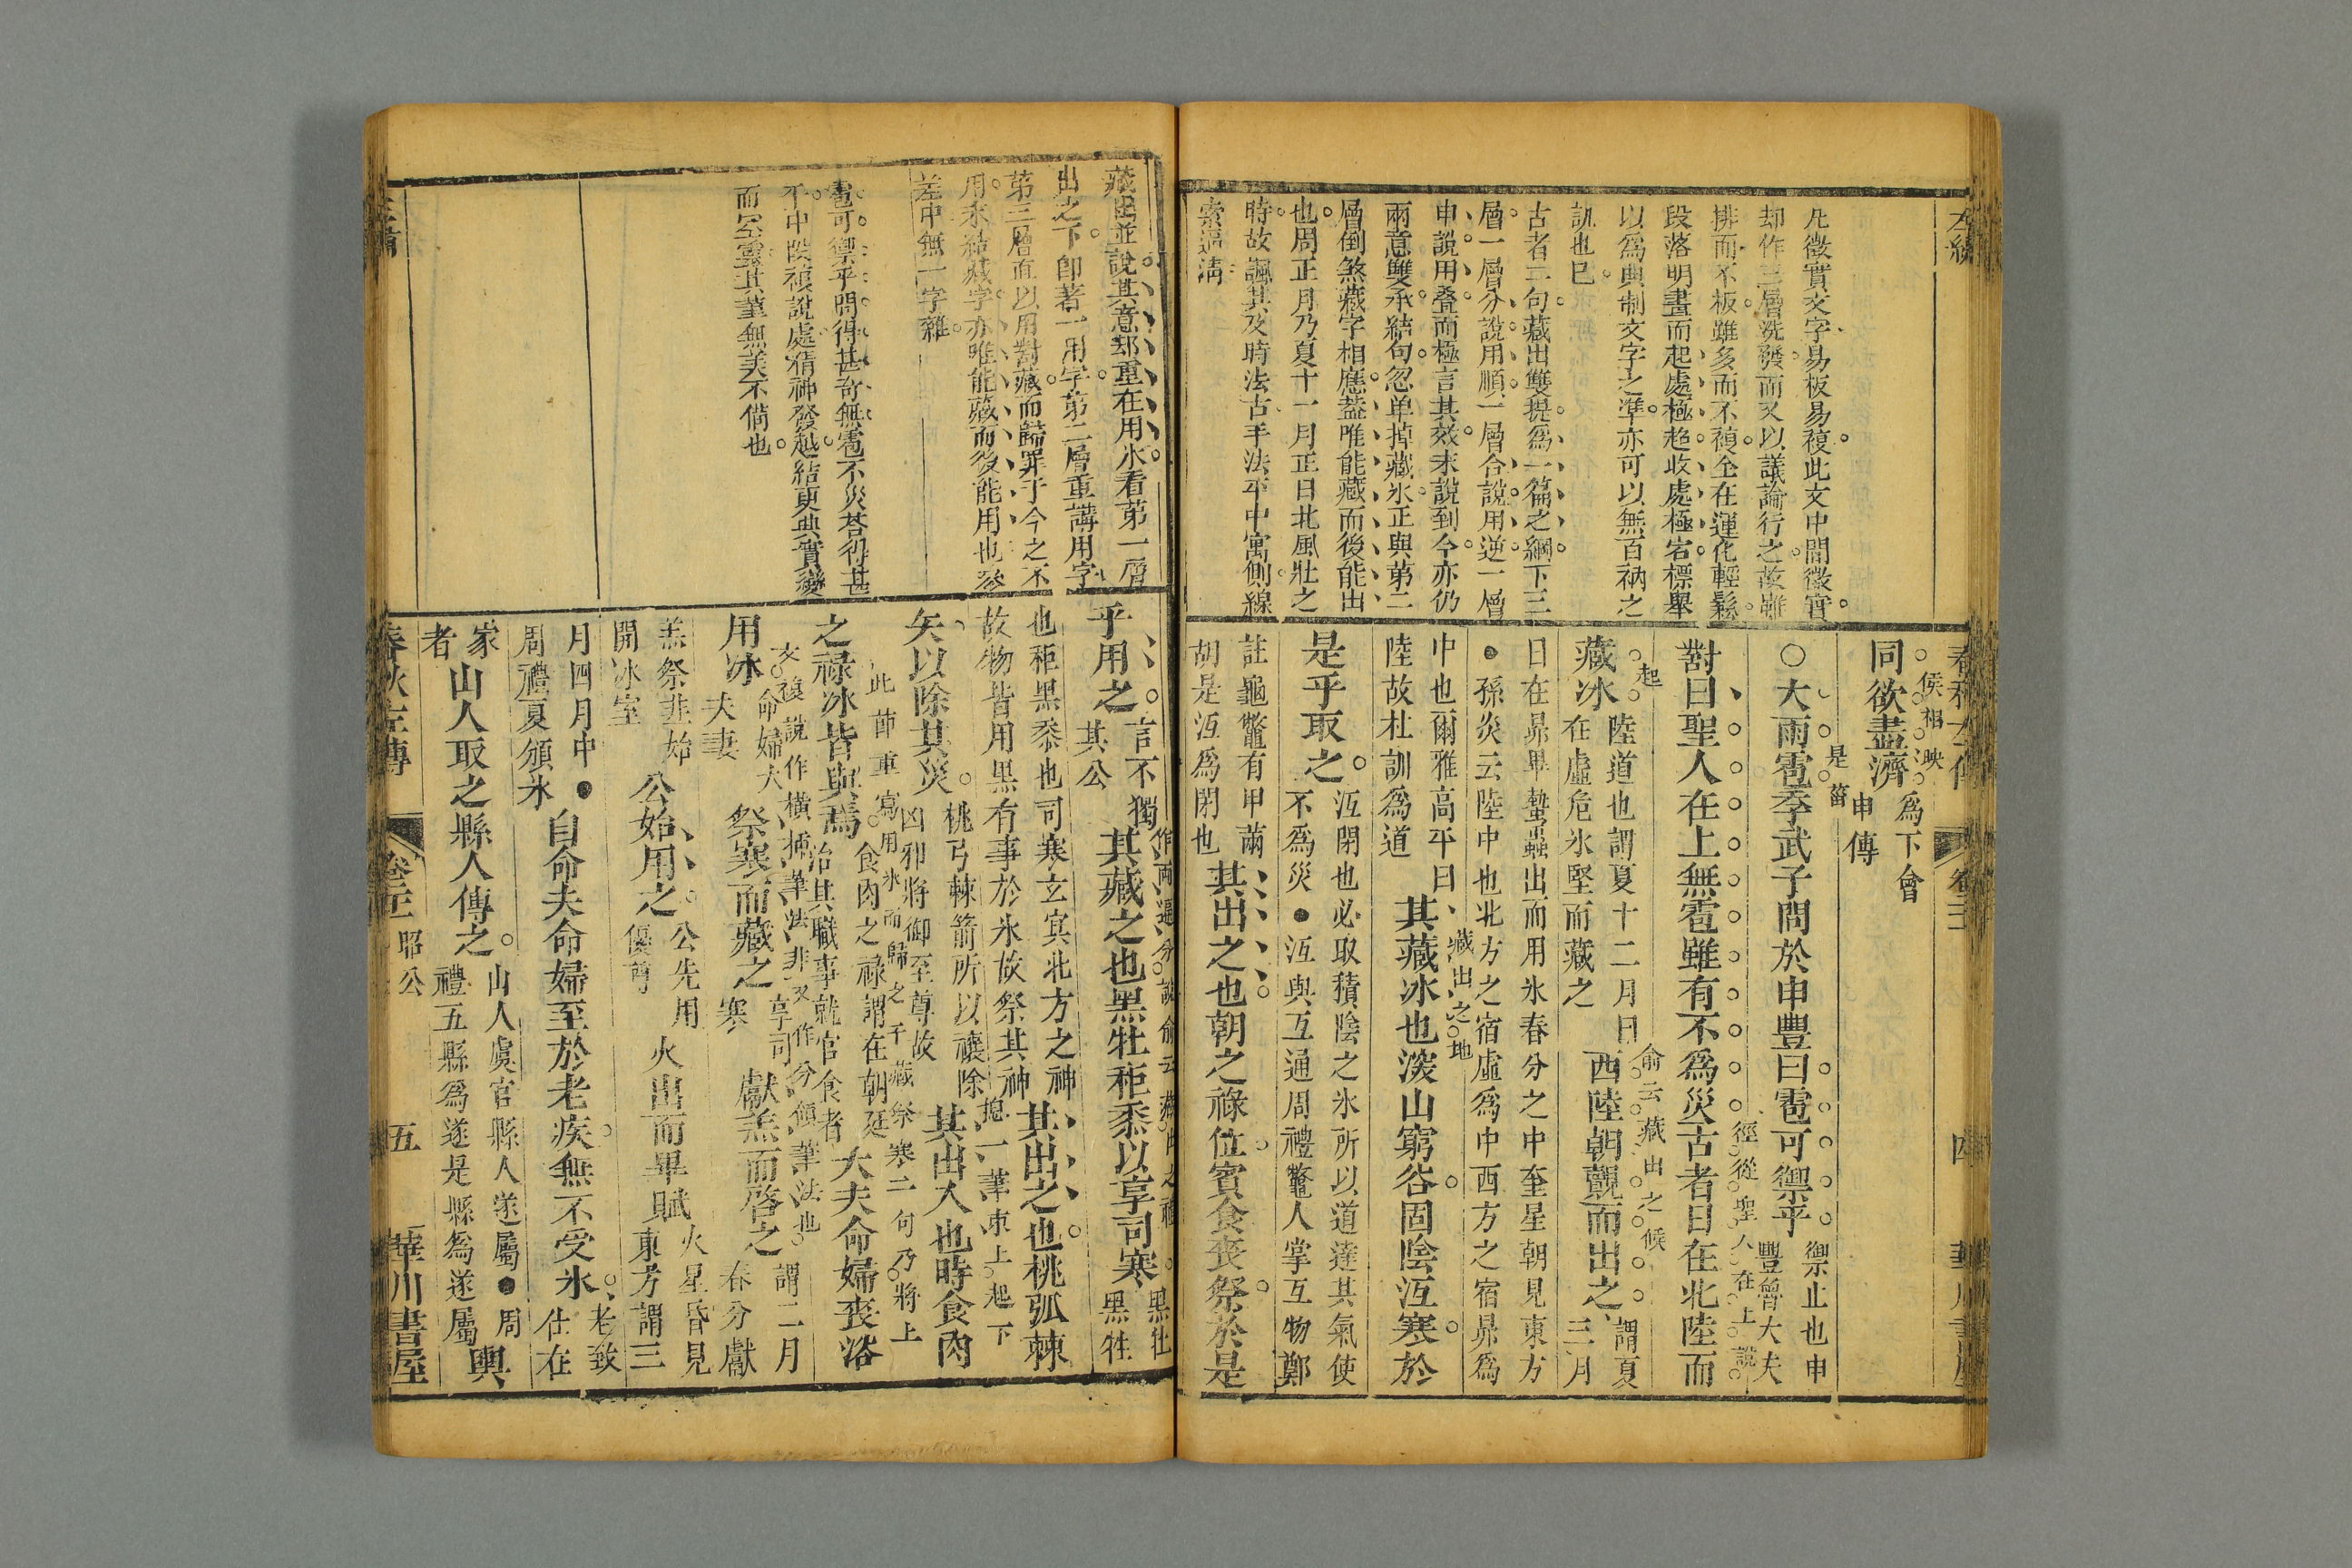 左繡
凡徵實文字易板易複此文中間徵實
却作三層洗發而又以議論行之故雖
排而不板雖多而不複全在運化輕鬆
段落明畫而起處極超收處極宕標舉
以為典制文字之準亦可以無百衲之
訊也已
古者二句藏出雙提為一篇之綱下三
層一層分說用順一層合說用逆一層
申說用叠而極言其效末說到今亦仍
兩意雙承結句忽单掉藏氷正與第二
層倒煞藏字相應葢唯能藏而後能出
也周正月乃夏十一月正日北風壯之
時故諷其及時法古手法平中寓側線
索逼清
春秋左傳
卷三
四
華川書屋
同欲盡濟
為下會
申傳
侯相映
○大雨雹季武子問於申豐曰雹可禦乎
禦止也申
豐魯大夫
是篇
徑從聖人在上說
對曰聖人在上無雹雖有不為災古者日在北陸而
起
藏冰
陸道也謂夏十二月日
在虛危氷堅而藏之
俞云藏出之候
西陸朝覿而出之
謂夏
三月
日在昴畢蟄蟲出而用氷春分之中奎星朝見東方
●孫炎云陸中也北方之宿虛為中西方之宿昴為
中也爾雅高平曰
陸故杜訓為道
藏出之地
其藏冰也深山窮谷固陰沍寒於
是乎取之
沍閉也必取積陰之氷所以道達其氣使
不為災●沍與互通周禮鼈人掌互物鄭
註龜鼈有甲蔨
胡是沍為閉也
其出之也朝之祿位賓食喪祭於是
藏出並說其意却重在用氷看第一層
出之下卽著一用字第二層重講用字
第三層直以用對藏而歸罪于今之不
用氷結藏字亦唯能藏而後能用也參
差中無一字雜
雹可禦乎問得甚奇無雹不災荅得甚
平中段複說處精神發越結更典實變
而空靈其筆無美不備也
乎用之
言不獨
其公
作兩遍分說俞云藏出之禮
其藏之也黑牡秬黍以享司寒
黑牡
黑牲
也秬黑黍也司寒玄冥北方之神
故物皆用黑有事於氷故祭其神
其出之也桃弧棘
總一筆束上起下
矢以除其災
桃弓棘箭所以禳除
凶邪將御至尊故
其出入也時食肉
此節重寫用氷而歸之于藏祭寒二句乃將上
之祿冰皆與焉
食肉之祿謂在朝廷
治其職事就官食者
大夫命婦喪浴
文複說作横插筆法非又作分領筆法也
用冰
命婦大
夫妻
祭寒而藏之
享司
寒
獻羔而啓之
謂二月
春分獻
羔祭韭始
開冰室
公始用之
公先用
優尊
火出而畢賦
火星昏見
東方謂三
月四月中●
周禮夏頒氷
自命夫命婦至於老疾無不受氷
老致
仕在
家
者
山人取之縣人傳之
山人虞官縣人遂屬●周
禮五縣為遂是縣為遂屬
輿
春秋左傳
卷三
昭公
五
華川書屋